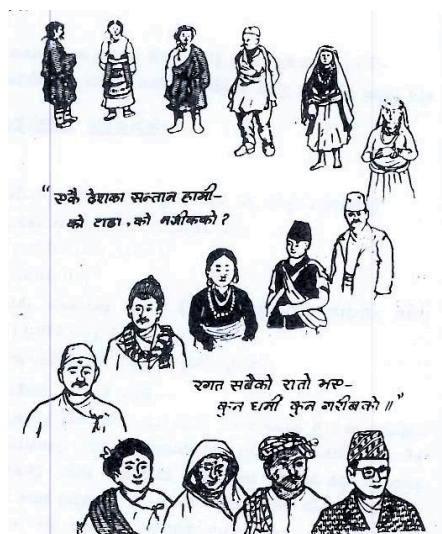 “एकै देशका सन्तान हामी–
को टाढा, को नजीकको ?
रगत सबैको रातो भए–
कुन धनी कुन गरीबको ॥”